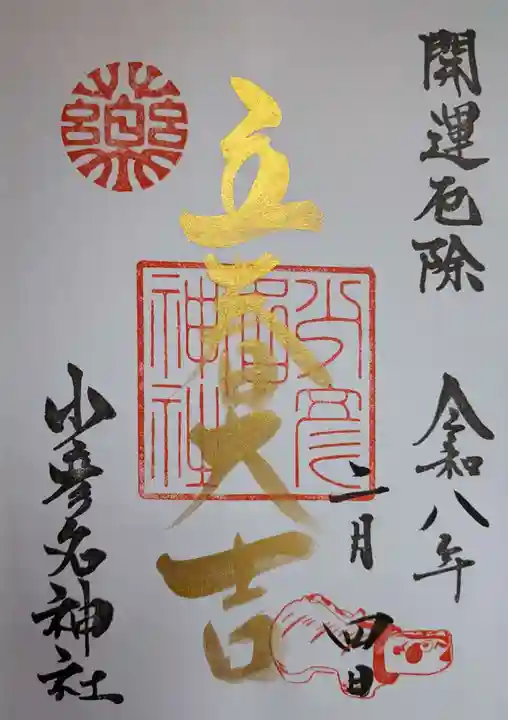 開運厄除
令和八年
二月四日
立春大吉
少彦名神社
薬
小彦名神社